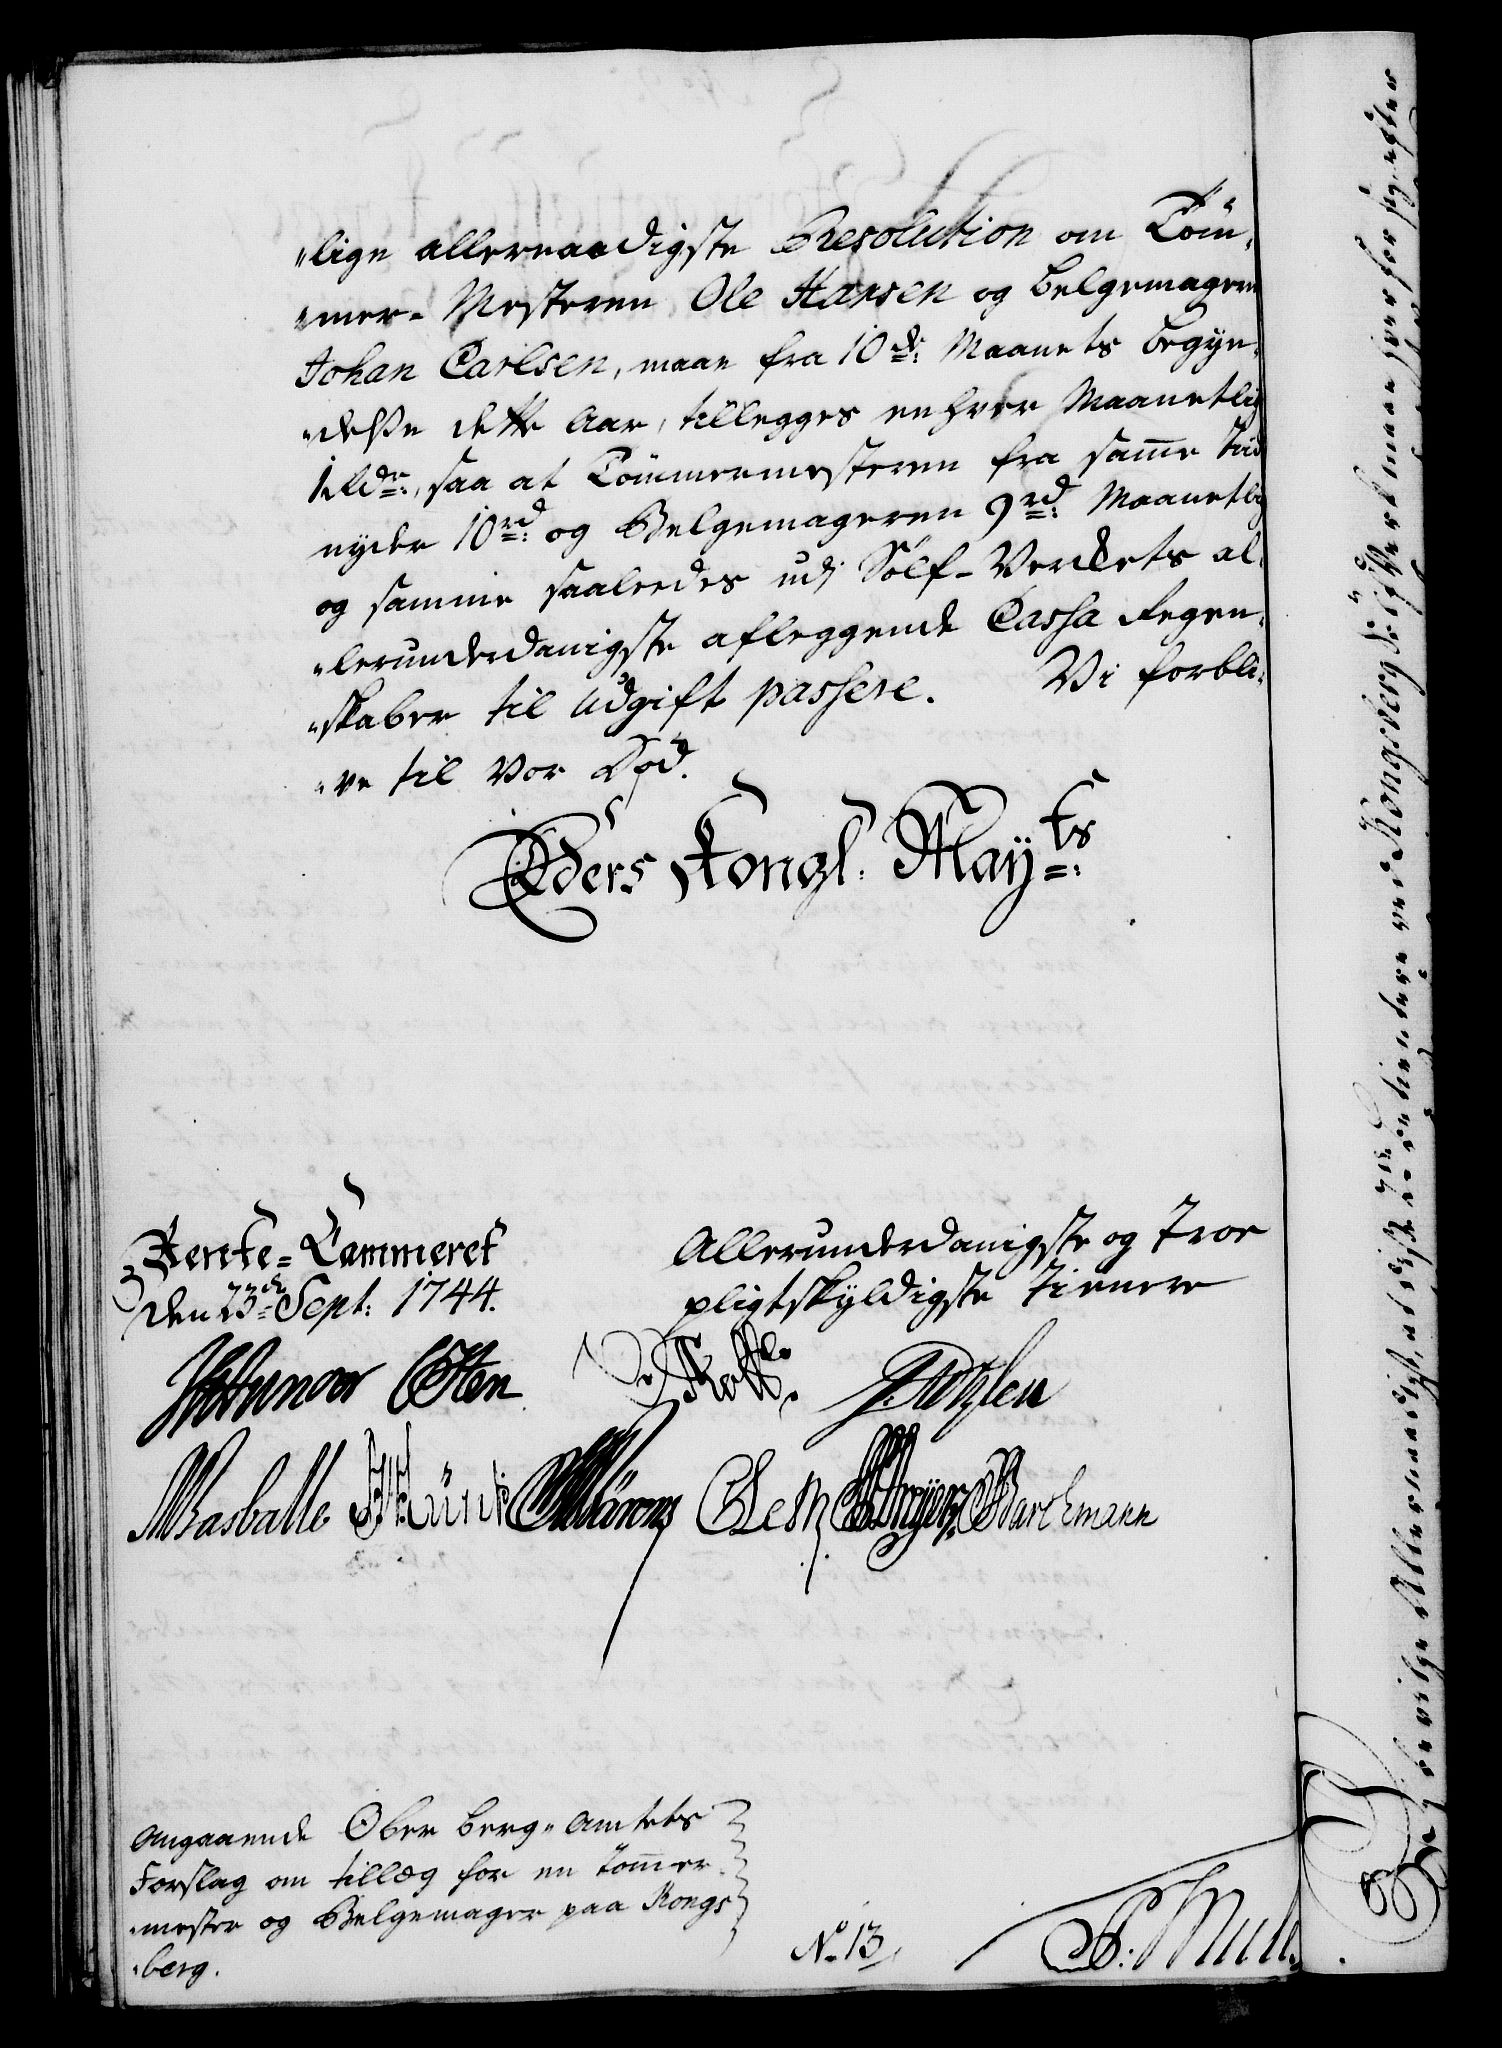 "lige allernaadigste Resolution om Töm„
"mer- Mesteren Ole Hansen og belgemageren
Johan Carlsen, maae fra 10de: Maanets begyn„
"delße dette Aar, tillegges enhver Maanetlig
1 Rdr:, saa at Tömmermesteren fra same tiid
nyder 10 rd: og Belgemageren 9 rd: Maanetlig
og samme saaleedes udj Sölf-Verkets al„
"lerunderdanigste afleggende Cassa Regen„
"skaber til udgift passere. Vi forbli„
"ve til vor Död.
Eders Kongl: May:ts
Rente=Cammeret
den 23de Sept: 1744.
Allerunderdanigste og Troe
pligtskyldigste tienere
Holten
JPetzlen
Rasballe
Barthmann
Angaaende Ober berg„Amtets
Forslag om tillæg for en tömer„
"mester og Belgemager paa Kongs
"berg.
No 13,
bevilge Allernaadigst, at disse 2de betientere ved Kongsberg Sölf Verk maae hver for sig, efter